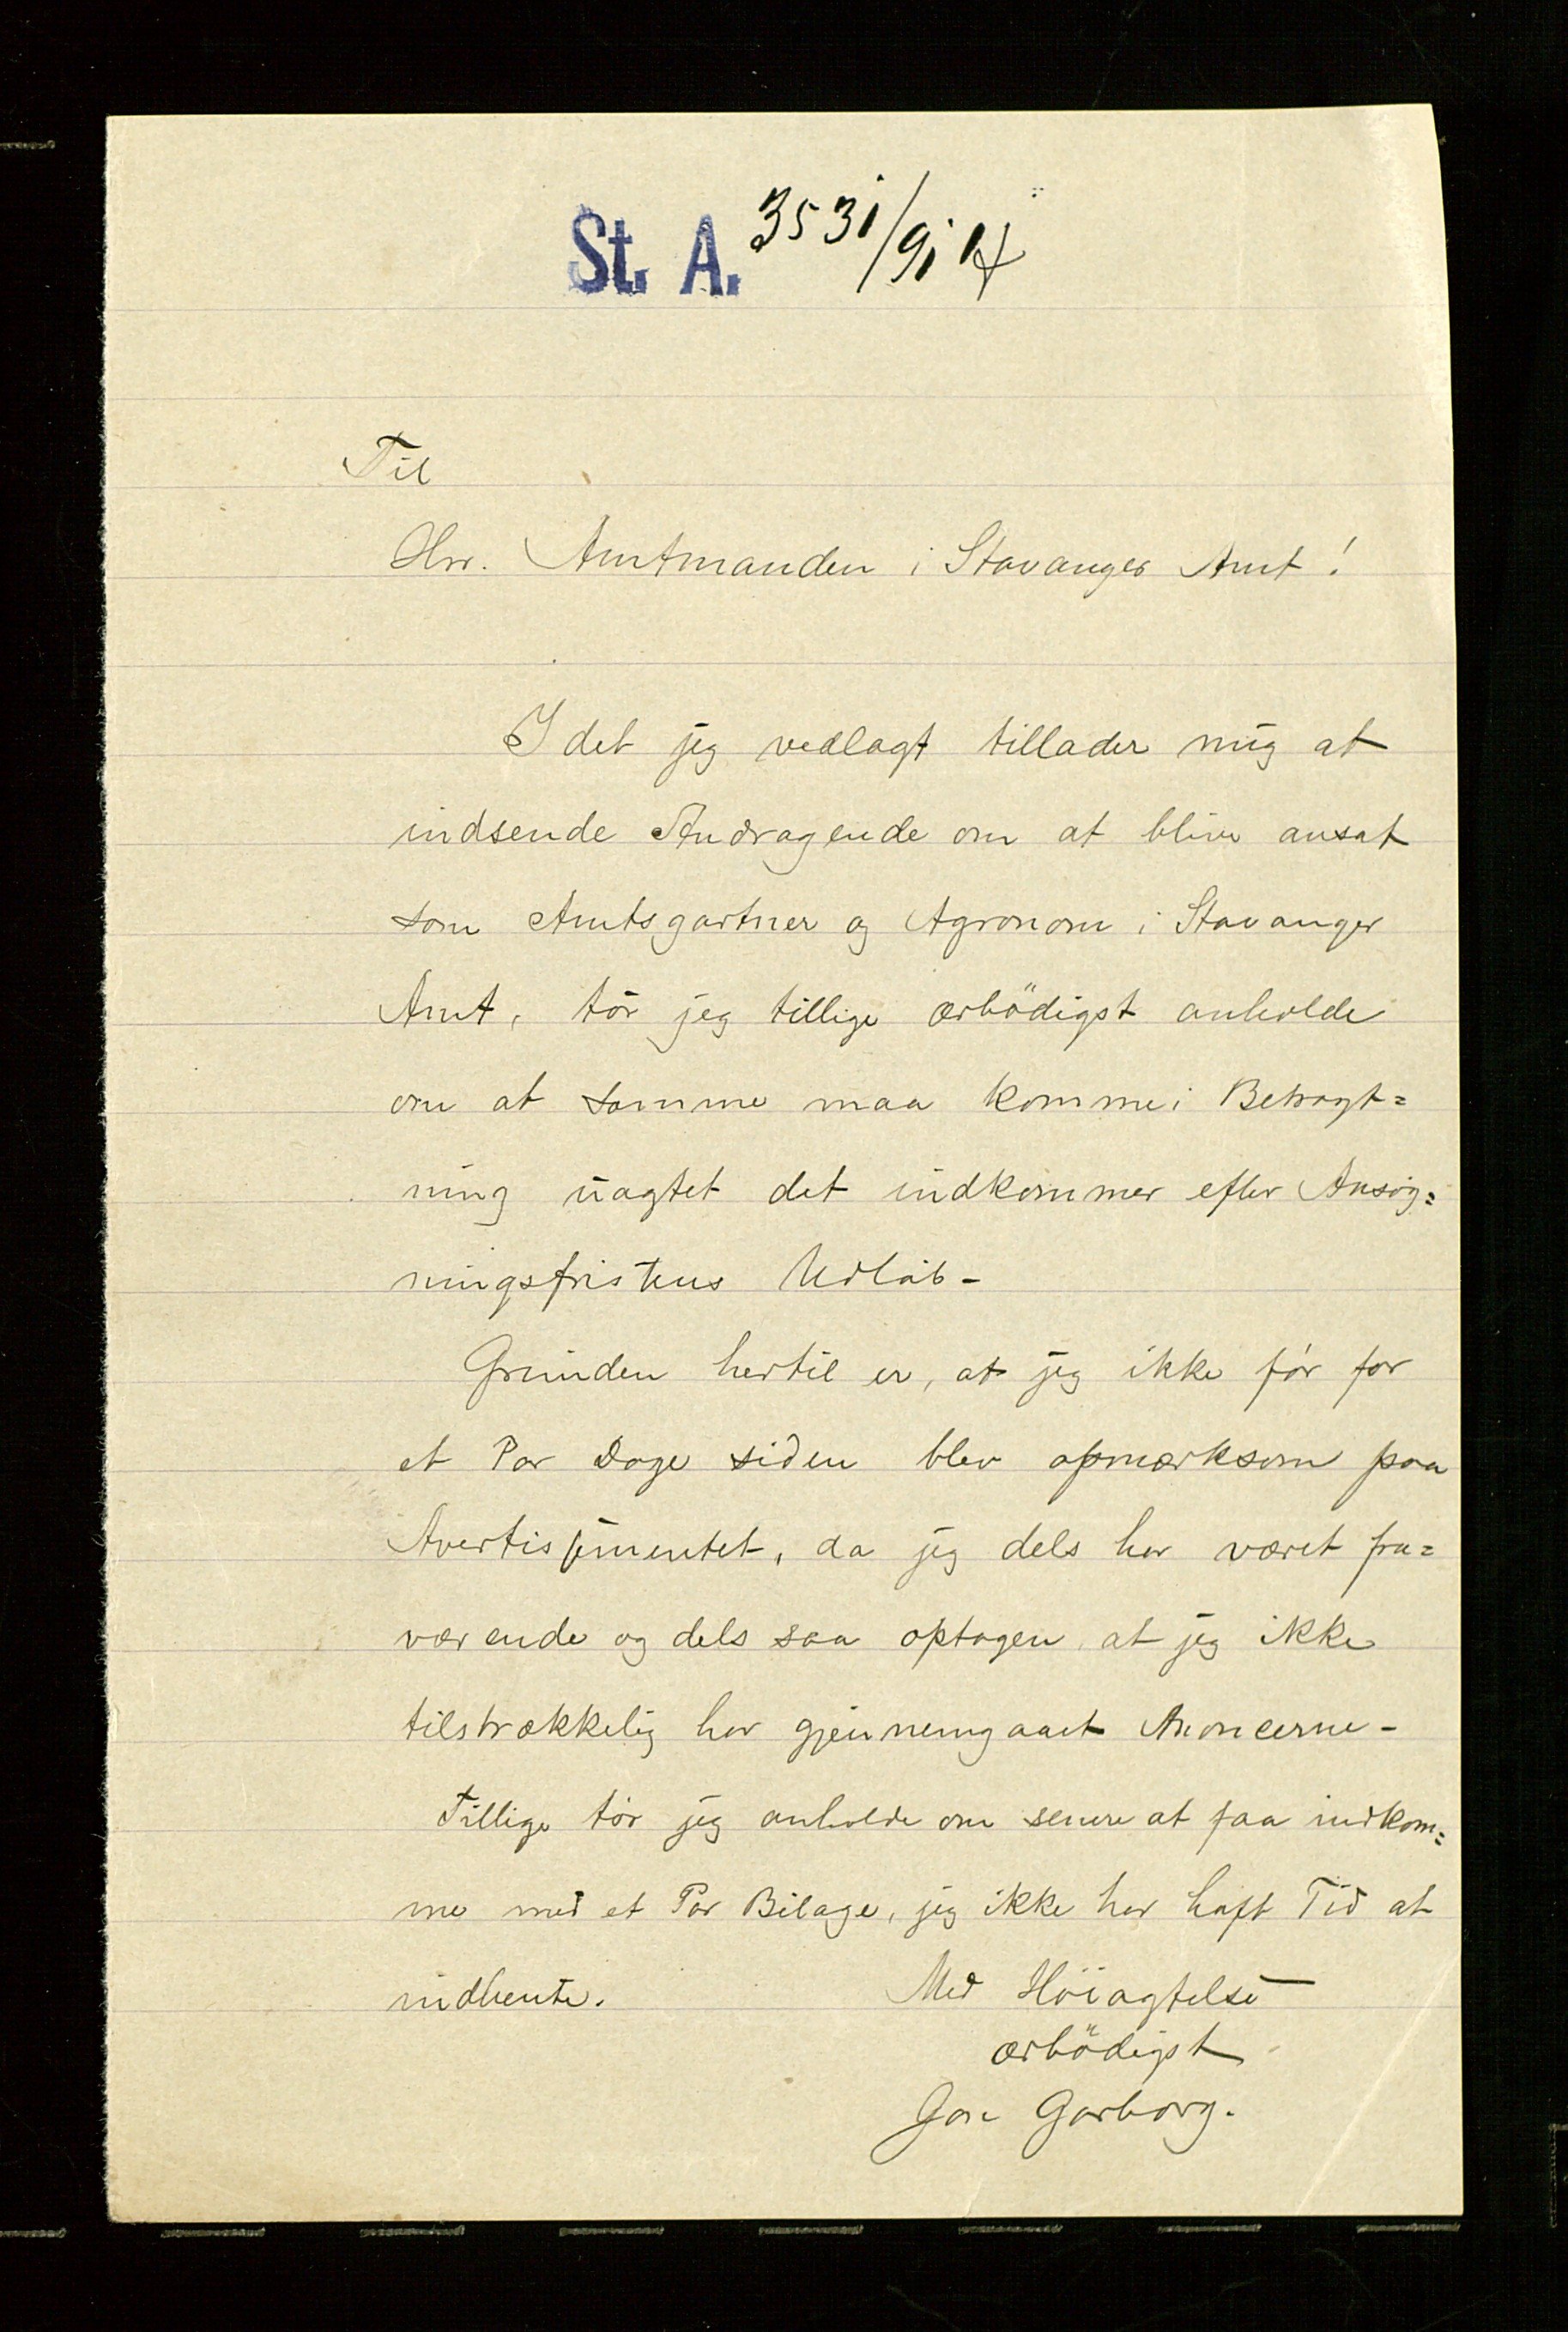 St. A. 3531/91
Til
Hrr. Amtmanden i Stavanger Amt!
I det jeg vedlagt tillader mig at
indsende Andragende om at blive ansat
som Amtsgartner og Agronom i Stavanger
Amt, tör jeg tillige ærbödigst anholde
om at samme maa komme i Betragt=
ning uagtet det indkommer efter Ansög=
ningsfristens Udlöb-
Grunden hertil er, at jeg ikke för for
et Par Dage siden blev opmærksom paa
Avertissementet, da jeg dels har været fra=
værende og dels saa optagen at jeg ikke
tilstrækkelig har gjennemgaaet Anoncerne-
Tillige tör jeg anholde om senere at faa indkom=
me med et Par Bilage, jeg ikke har haft Tid at
indhente.
Med Höiagtelse
ærbödigst
Jon Garborg.